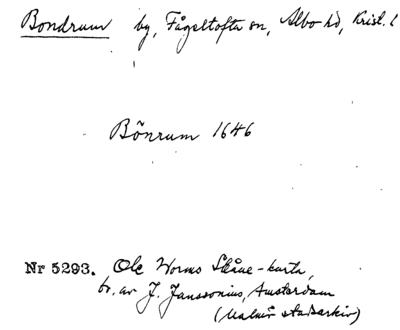 Bondrum by, Fågeltofta sn, Albo hd, Krist. l
Bönrum 1646
Nr 5293. Ole Worms Skåne-karta,
br. av J. Janssonius, Amsterdam
(Malmö stadsarkiv)